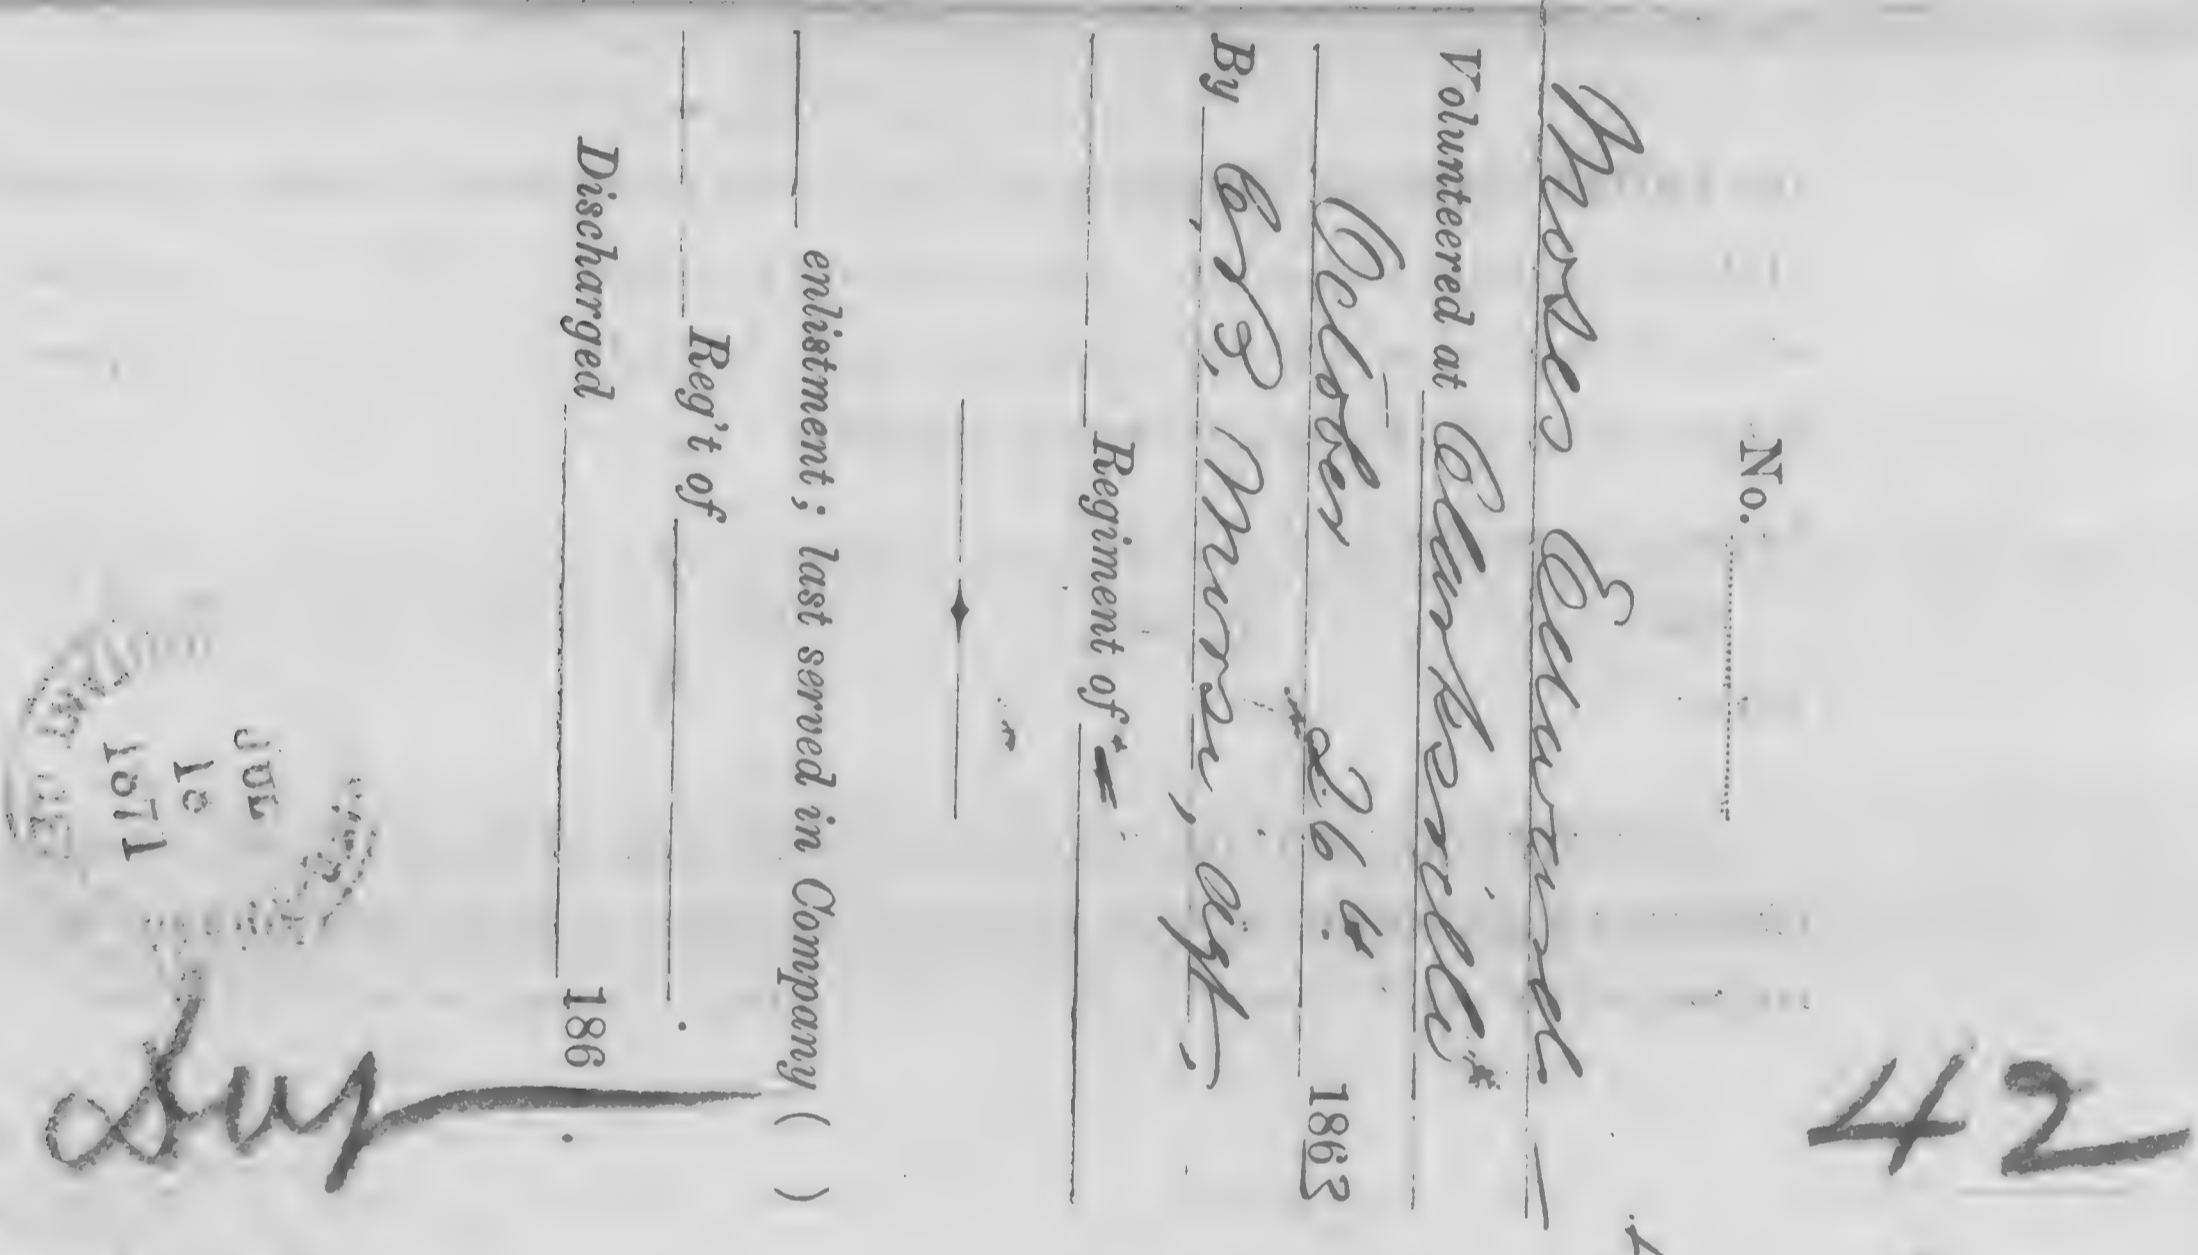 42
No.
Moses Ellwood
Volunteered at Clarksville
October 26 1863
By Cos B, Murson, Agt
Regiment of
enlistment; last served in Company ( )
Reg't of
Discharged 186
JUL
18
1871
Dup